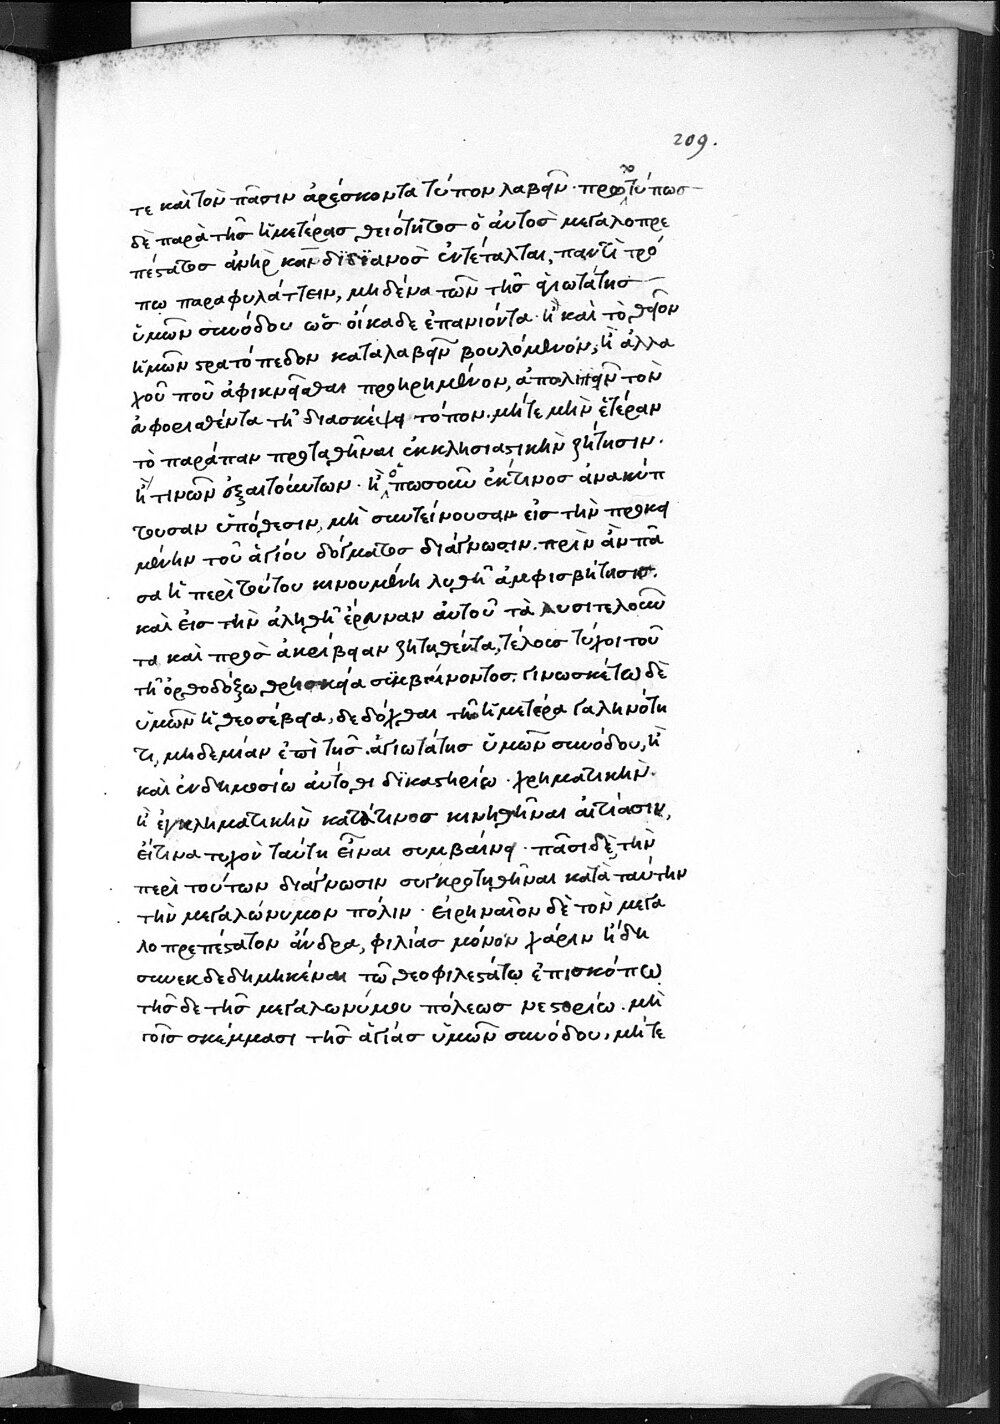 209.
τε καὶ τὸν πᾶσιν ἀρέσκοντα τύπον λαβεῖν· πρὸ τούτων
δὲ παρὰ τῆς ἡμετέρας θειότητος ὁ αὐτὸς μεγαλοπρε
πέστατος ἀνὴρ κανδιδιανὸς ἐντέταλται, παντὶ τρό
πω παραφυλάττειν, μηδένα τῶν τῆς ἁγιωτάτης
ὑμῶν συνόδου ὡς οἴκαδε ἐπανιόντα· ἢ καὶ τὸ θεῖον
ἡμῶν στρατόπεδον καταλαβεῖν βουλόμενον, ἢ ἀλλα
χοῦ ποῦ ἀφικνεῖσθαι προηρημένον, ἀπολιπεῖν τὸν
ἀφορισθέντα τῆ διασκέψει τόπον· μήτε μὴν ἑτέραν
τὸ παράπαν προταθῆναι ἐκκλησιαστικὴν ζήτησιν·
ἢ τινῶν ἐξαιτούντων· ἢ ὁπωσοῦν ἔκ τινος ἀνακύπ
τουσαν ὑπόθεσιν, μὴ συντείνουσαν εἰς τὴν προκει
μένην τοῦ ἁγίου δόγματος διάγνωσιν· πρὶν ἂν πᾶ
σα ἡ περὶ τούτου κινουμένη λυθῆ ἀμφισβήτησις·
καὶ εἰς τὴν ἀληθῆ ἔρευναν αὐτοῦ τὰ λυσιτελοῦν
τα καὶ πρὸς ἀκρίβειαν ζητηθέντα, τέλους τύχοι τοῦ
τῆ ὀρθοδόξω θρησκεία συμβαίνοντος· γινωσκέτω δὲ
ὑμῶν ἡ θεοσέβεια, δεδόχθαι τῆ ἡμετέρα γαληνότη
τι, μηδεμίαν ἐπὶ τῆς ἁγιωτάτης ὑμῶν συνόδου, ἢ
καὶ ἐν δημοσίω αὐτόθι δικαστηρίω· χρηματικὴν·
ἢ ἐγκληματικὴν κατά τινος κινηθῆναι αἰτίασιν,
εἴ τινα τυχὸν ταύτη εἶναι συμβαίνει· πᾶσι δὲ τὴν
περὶ τούτων διάγνωσιν συγκροτηθῆναι κατὰ ταύτην
τὴν μεγαλώνυμον πόλιν· εἰρηναῖον δὲ τὸν μεγα
λοπρεπέστατον ἄνδρα, φιλίας μόνον χάριν ἤδη
συνεκδεδημηκέναι τῶ θεοφιλεστάτω ἐπισκόπω
τῆς δε τῆς μεγαλωνύμου πόλεως νεστορίω· μὴ
τοῖς σκέμμασι τῆς ἁγίας ὑμῶν συνόδου, μήτε